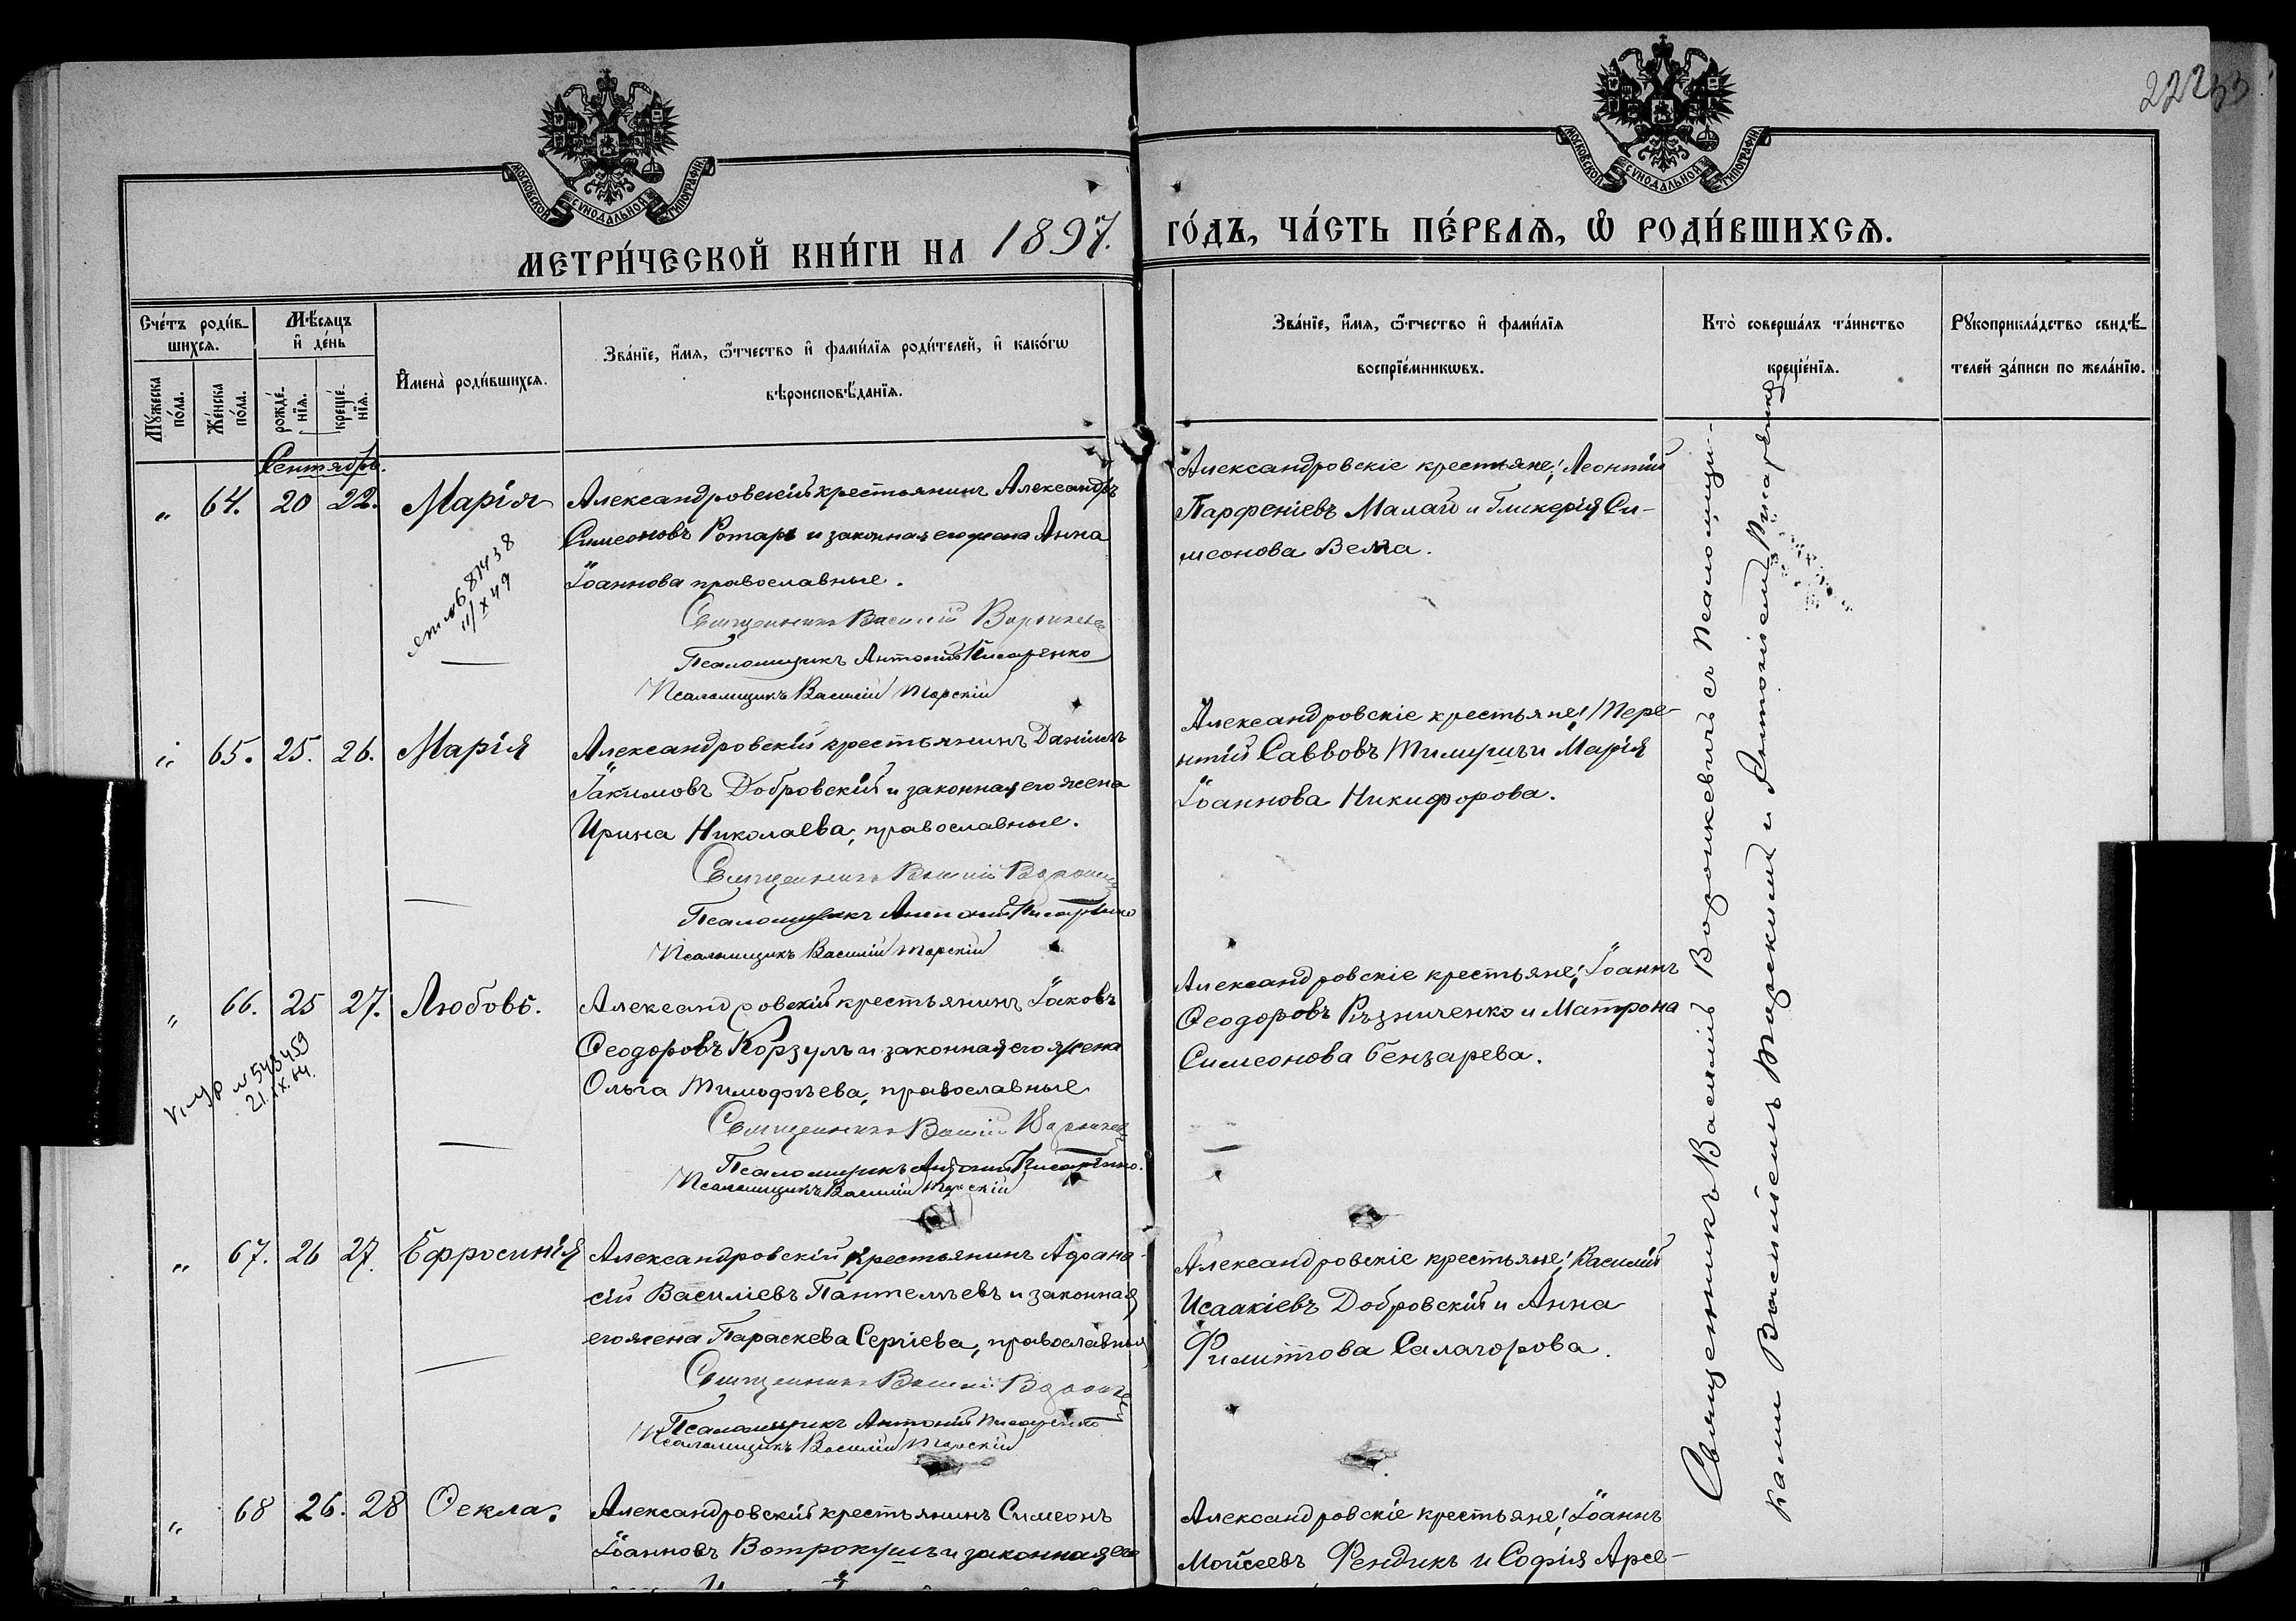 2223
МОСКОВСКОЙ СѴНОДАЛЬНОЙ ТИПОГРАФІИ
МОСКОВСКОЙ СѴНОДАЛЬНОЙ ТИПОГРАФІИ
МЕТРИ́ЧЕСКОЙ КНИ́ГИ НА 1897. ГО́ДЪ, ЧА́СТЬ ПЕ́РВАѦ, Ѡ РОДИ́ВШИХСѦ.
Сче́тъ роди́в-
шихсѧ.
Мꙋ́жеска
по́ла.
Же́нска
по́ла.
Мѣ́сѧцъ
и҆ де́нь
рожде́-
нїѧ.
креще́-
нїѧ.
И҆мена̀ роди́вшихсѧ.
Зва́нїе, и҆́мѧ, ѻ҆́тчество и҆ фамі́лїѧ роди́телей, и҆ како́гѡ
вѣроисповѣ́данїѧ.
Зва́нїе, и҆́мѧ, ѻ҆́тчество и҆ фамі́лїѧ
воспрїе́мникѡвъ.
Кто̀ соверша́лъ та́инство
креще́нїѧ.
Рꙋкоприкла́дство свидѣ́-
телей за́писи по жела́нїю.
Сентябрь.
„ 64. 20 22. Марія
Александровскій крестьянинъ Александръ
Симеоновъ Ротарь и законная его жена Анна
Іоаннова православные.
Священникъ Василій
Псаломщикъ Антоній Писаренко
Псаломщикъ Василій Торскій
№ 681438
11/X 49
Александровскіе крестьяне: Леонтій
Парфеніевъ Малай и Гликерія Си-
меонова Велла.
„ 65. 25. 26. Марія
Александровскій крестьянинъ Даніилъ
Іакимовъ Добровскій и законная его жена
Ирина Николаева, православные.
Священникъ Василій
Псаломщикъ Антоній Писаренко
Псаломщикъ Василій Торскій
Александровскіе крестьяне: Тере-
нтій Саввовъ Тимушъ и Марія
Іоаннова Никифорова.
„ 66. 25 27. Любовь.
Александровскій крестьянинъ Іаковъ
Ѳеодоровъ Корзулъ и законная его жена
Ольга Тимофѣева, православные
Священникъ Василій
Псаломщикъ Антоній Писаренко.
Псаломщикъ Василій Торскій
№ 543459
21.IX.64.
Александровскіе крестьяне: Іоаннъ
Ѳеодоровъ Рѣзниченко и Матрона
Симеонова Бензарева.
„ 67. 26 27. Ефросинія
Александровскій крестьянинъ Афана-
сій Василіевъ Пантелѣевъ и законная
его жена Параскева Сергіева, православные
Священникъ Василій
Псаломщикъ Антоній Писаренко
Псаломщикъ Василій Торскій
Александровскіе крестьяне: Василій
Исаакіевъ Добровскій и Анна
Филиппова Салагорова.
„ 68 26. 28 Ѳекла.
Александровскій крестьянинъ Симеонъ
Іоанновъ Вотрокушъ и законная его
Александровскіе крестьяне: Іоаннъ
Моисеевъ Фендикъ и Софія Арсе-
Священникъ Василій Воронкевичъ съ псаломщи-
ками Василіемъ Торскимъ и Антоніемъ Писаренко